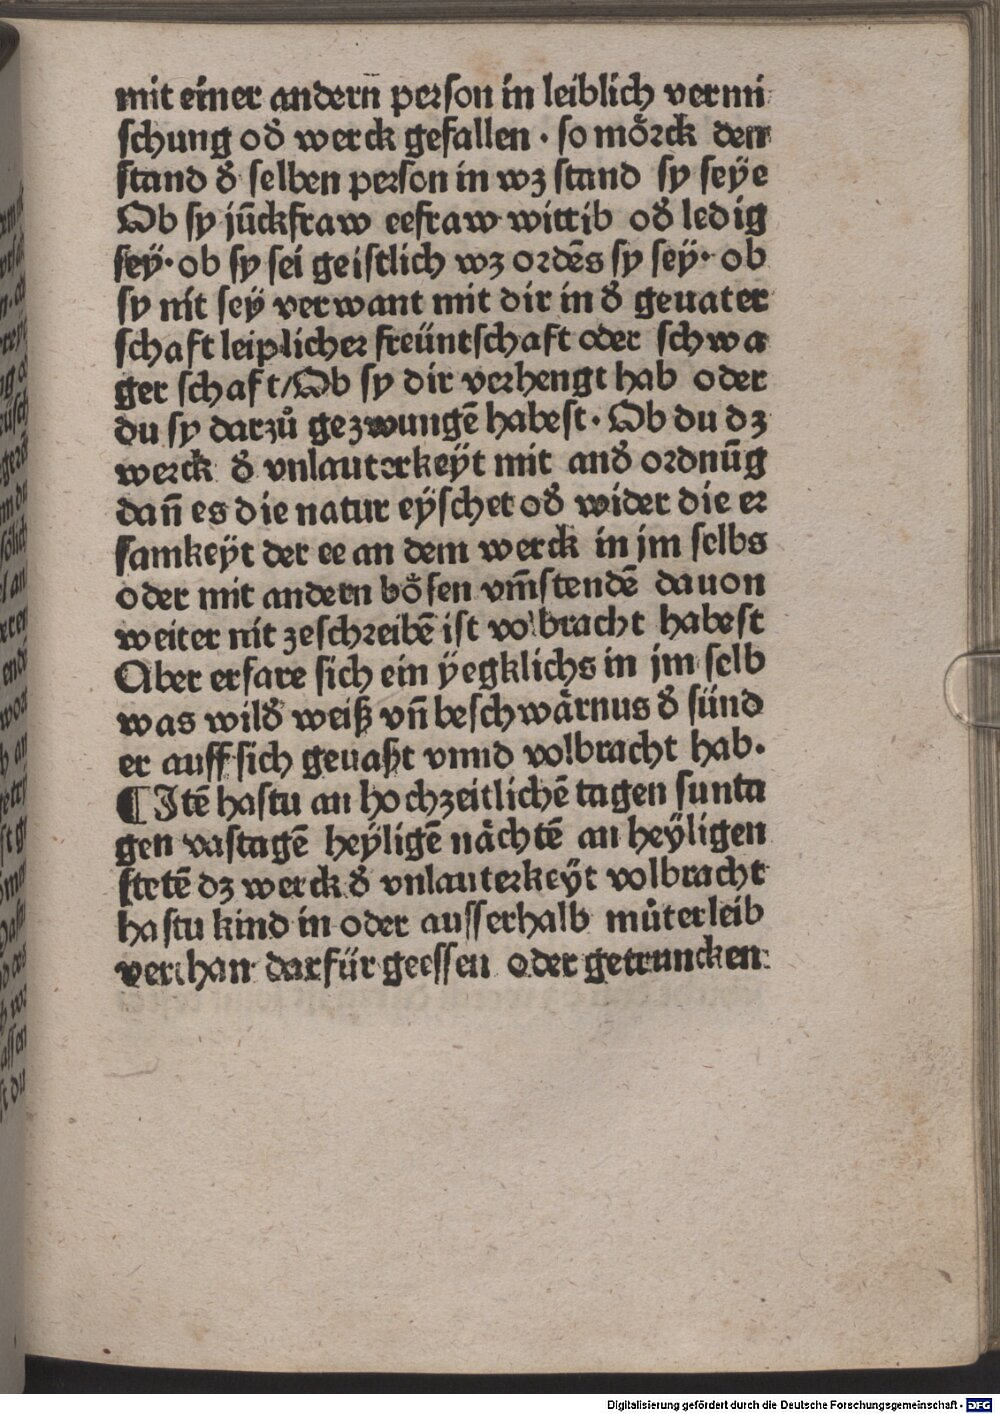 mit einer andern̄ person in leiblich vermi
schung oð werck gefallen · so moͤrck den
stand ð selben person in wz stand sy seÿe
Ob sy jūckfraw eefraw wittib oð ledig
seÿ· ob sy sei geistlich wz ordēs sy seÿ· ob
sy nit seÿ verwant mit dir in ð geuater
schaft leiplicher freüntschaft oder schwa
ger schaft/Ob sy dir verhengt hab oder
du sy darzů gezwungē habest· Ob du dz
werck ð vnlauterkeÿt mit anð ordnūg
dan̄ es die natur eÿschet oð wider die er
samkeÿt der ee an dem werck in jm selbs
oder mit andern boͤsen vm̄stendē dauon
weiter nit zeschreibē ist volbracht habest
Aber erfare sich ein ÿegklichs in jm selb
was wilð weiß vn̄ beschwaͤrnus ð sünd
er auff sich geuaßt vnnd volbracht hab·
¶ Itē hastu an hochzeitlichē tagen sunta
gen vastagē heÿligē naͤchtē an heÿligen
stetē dz werck ð vnlauterkeÿt volbracht
hastu kind in oder ausserhalb můterleib
verthan darfür geessen oder getruncken
Digitalisierung gefördert durch die Deutsche Forschungsgemeinschaft - DFG